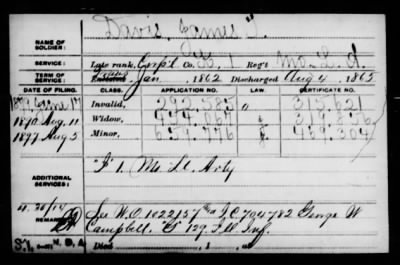 NAME OF SOLDIER: Davis, James T.
SERVICE: Late rank, Corp'l Co. I, 1 Reg't Mo. L. A.
TERM OF SERVICE: Enlisted Jan 1862 Discharged Aug 4, 1865
DATE OF FILING. CLASS. APPLICATION NO. LAW. CERTIFICATE NO.
1879 June 17 Invalid, 292.585 315.621
1890 Aug. 11 Widow, 318.856
1897 Aug 5 Minor, 659.776 469.304
ADDITIONAL SERVICES: "I" 1. Mo. Lt. Arty
REMARKS: See W.O. 1022157 I.C. 704782 George W
Campbell. "C" 129. Ill Inf.
Died , 1 , at